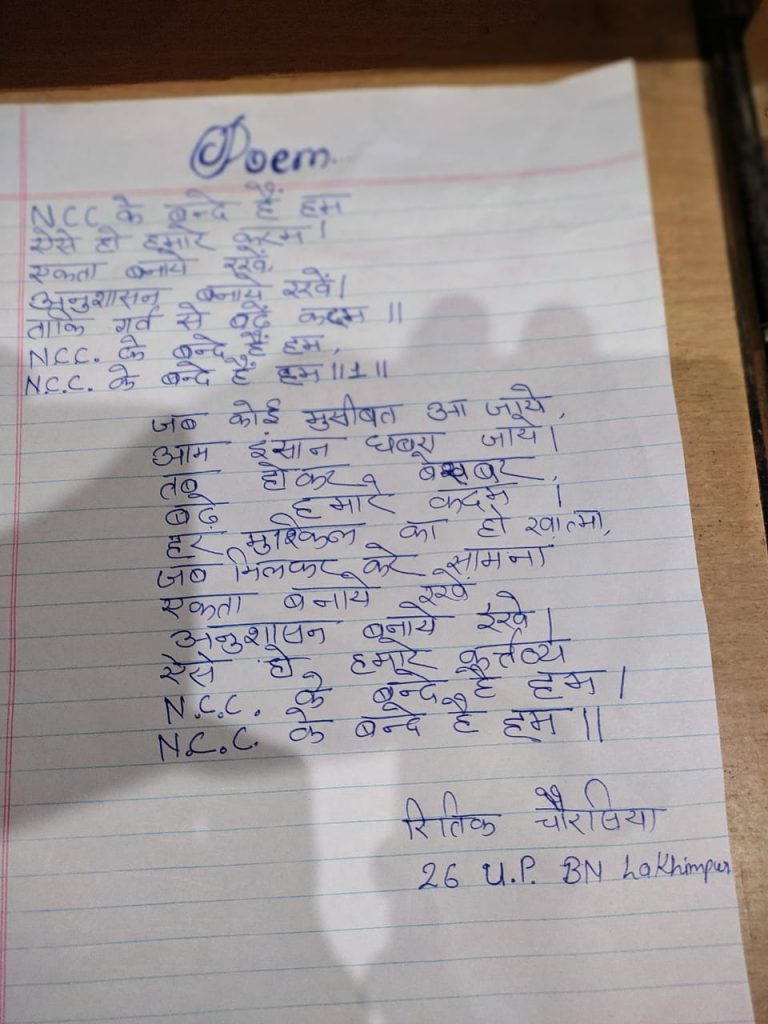 Poem...
NCC के बन्दे हैं हम
ऐसे हो हमारे करम।
एकता बनाये रखें,
अनुशासन बनाये रखें।
ताकि गर्व से बढ़े कदम ॥
N.C.C. के बन्दे हैं हम,
N.C.C. के बन्दे हैं हम ॥1॥
जब कोई मुसीबत आ जाये,
आम इंसान घबरा जाये।
तब होकर बेखबर,
बढ़े हमारे कदम ।
हर मुश्किल का हो खात्मा,
जब मिलकर करे सामना
एकता बनाये रखें
अनुशासन बनाये रखे।
ऐसे हो हमारे कर्तव्य
N.C.C. के बन्दे है हम ।
N.C.C. के बन्दे है हम ॥
रितिक चौरसिया
26 U.P. BN Lakhimpur